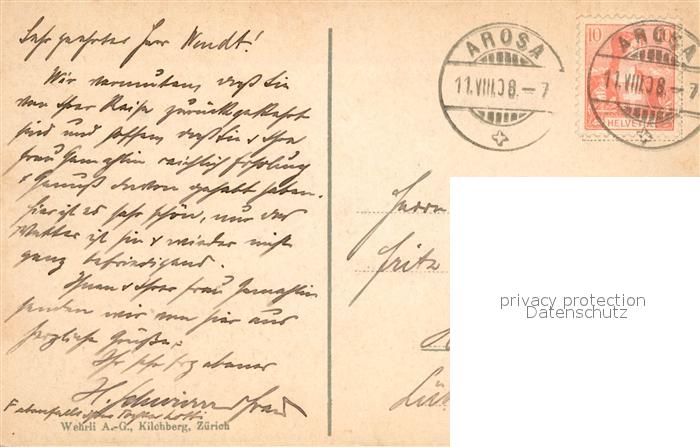 Sehr geehrter Herr Wendt!
Wir vermuten, daß Sie
von Ihrer Reise zurückgekehrt
sind und hoffen, daß Sie & Ihre
Frau Gemahlin reichlich Erholung
& Genuß davon gehabt haben.
Hier ist es sehr schön, nur das
Wetter ist hin & wieder nicht
ganz befriedigend.
Ihnen & Ihrer Frau Gemahlin
senden wir von hier aus
herzliche Grüße,
Ihr sehr ergebener
H. & Frau
ebenfalls Tochter Lotti
Wehrli A.-G., Kilchberg, Zürich
AROSA
11.VIII.08.–7
10
HELVETIA
AROSA
11.VIII.08.–7
Herrn
Fritz
privacy protection
Datenschutz